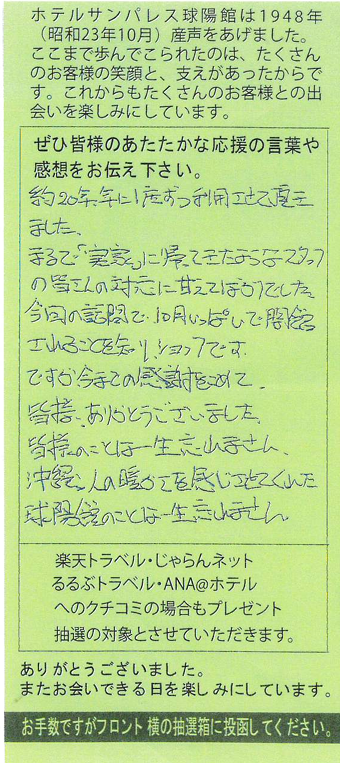 ホテルサンパレス球陽館は1948年
（昭和23年10月）産声をあげました。
ここまで歩んでこられたのは、たくさん
のお客様の笑顔と、支えがあったからで
す。これからもたくさんのお客様との出
会いを楽しみにしています。
ぜひ皆様のあたたかな応援の言葉や
感想をお伝え下さい。
約20年、年に1度ずつ利用させて頂き
ました。
まるで「実家」に帰ってきたようなスタッフ
の皆さんの対応に甘えてばかりでした。
今回の訪問で、10月いっぱいで閉館
されることを知り、ショックです。
ですが今までの感謝をこめて、
皆様、ありがとうございました。
皆様のことは一生忘れません。
沖縄の人の暖かさを感じさせてくれた
球陽館のことは一生忘れません。
楽天トラベル・じゃらんネット
るるぶトラベル・ANA@ホテル
へのクチコミの場合もプレゼント
抽選の対象とさせていただきます。
ありがとうございました。
またお会いできる日を楽しみにしています。
お手数ですがフロント横の抽選箱に投函してください。